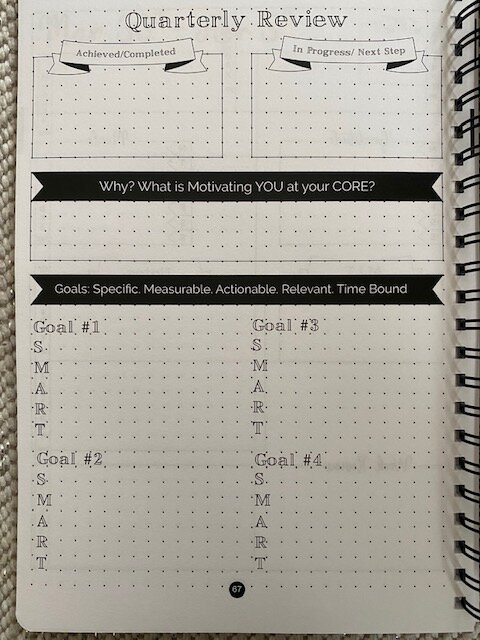 Quarterly Review
Achieved/Completed
In Progress/ Next Step
Why? What is Motivating YOU at your CORE?
Goals: Specific. Measurable. Actionable. Relevant. Time Bound
Goal #1
S
M
A
R
T
Goal #2
S
M
A
R
T
Goal #3
S
M
A
R
T
Goal #4
S
M
A
R
T
67